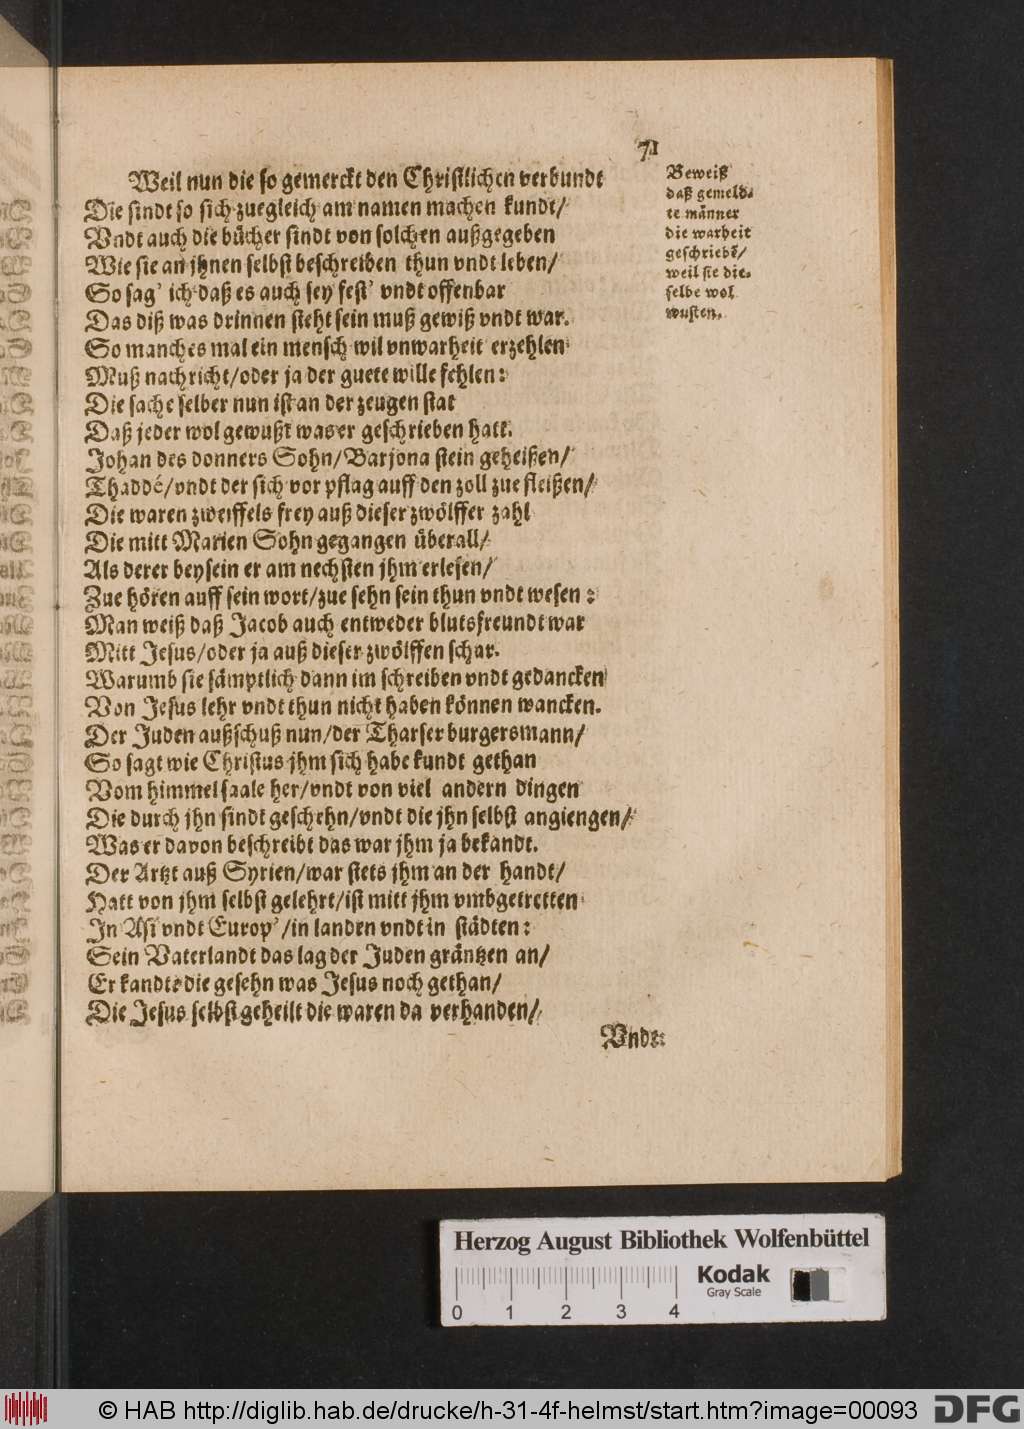 71
Weil nun die so gemerckt den Christlichen verbundt
Die sindt so sich zuegleich am namen machen kundt/
Vndt auch die bücher sindt von solchen außgegeben
Wie sie an jhnen selbst beschreiben thun vndt leben/
So sag’ ich daß es auch sey fest’ vndt offenbar
Das diß was drinnen steht sein muß gewiß vndt war.
So manches mal ein mensch wil vnwarheit erzehlen
Muß nachricht/oder ja der guete wille fehlen:
Die sache selber nun ist an der zeugen stat
Daß jeder wol gewußt was er geschrieben hatt.
Johan des donners Sohn/Barjona stein geheißen/
Thaddé/vndt der sich vor pflag auff den zoll zue fleißen/
Die waren zweiffels frey auß dieser zwölffer zahl
Die mitt Marien Sohn gegangen überall/
Als derer beysein er am nechsten jhm erlesen/
Zue hören auff sein wort/zue sehn sein thun vndt wesen:
Man weiß daß Jacob auch entweder blutsfreundt war
Mitt Jesus/oder ja auß dieser zwölffen schar.
Warumb sie sämptlich dann im schreiben vndt gedancken
Von Jesus lehr vndt thun nicht haben können wancken.
Der Juden außschuß nun/der Tharser burgersmann/
So sagt wie Christus jhm sich habe kundt gethan
Vom himmel saale her/vndt von viel andern dingen
Die durch jhn sindt geschehn/vndt die jhn selbst angiengen/
Was er davon beschreibt das war jhm ja bekandt.
Der Artzt auß Syrien/war stets jhm an der handt/
Hatt von jhm selbst gelehrt/ist mitt jhm vmbgetretten
In Asi vndt Europ’/in landen vndt in städten:
Sein Vaterlandt das lag der Juden gräntzen an/
Er kandte die gesehn was Jesus noch gethan/
Die Jesus selbst geheilt die waren da verhanden/
Vndt
Beweiß
daß gemeld-
te männer
die warheit
geschriebē/
weil sie die-
selbe wol
wusten.
Herzog August Bibliothek Wolfenbüttel
Kodak
Gray Scale
0 1 2 3 4
© HAB http://diglib.hab.de/drucke/h-31-4f-helmst/start.htm?image=00093
DFG